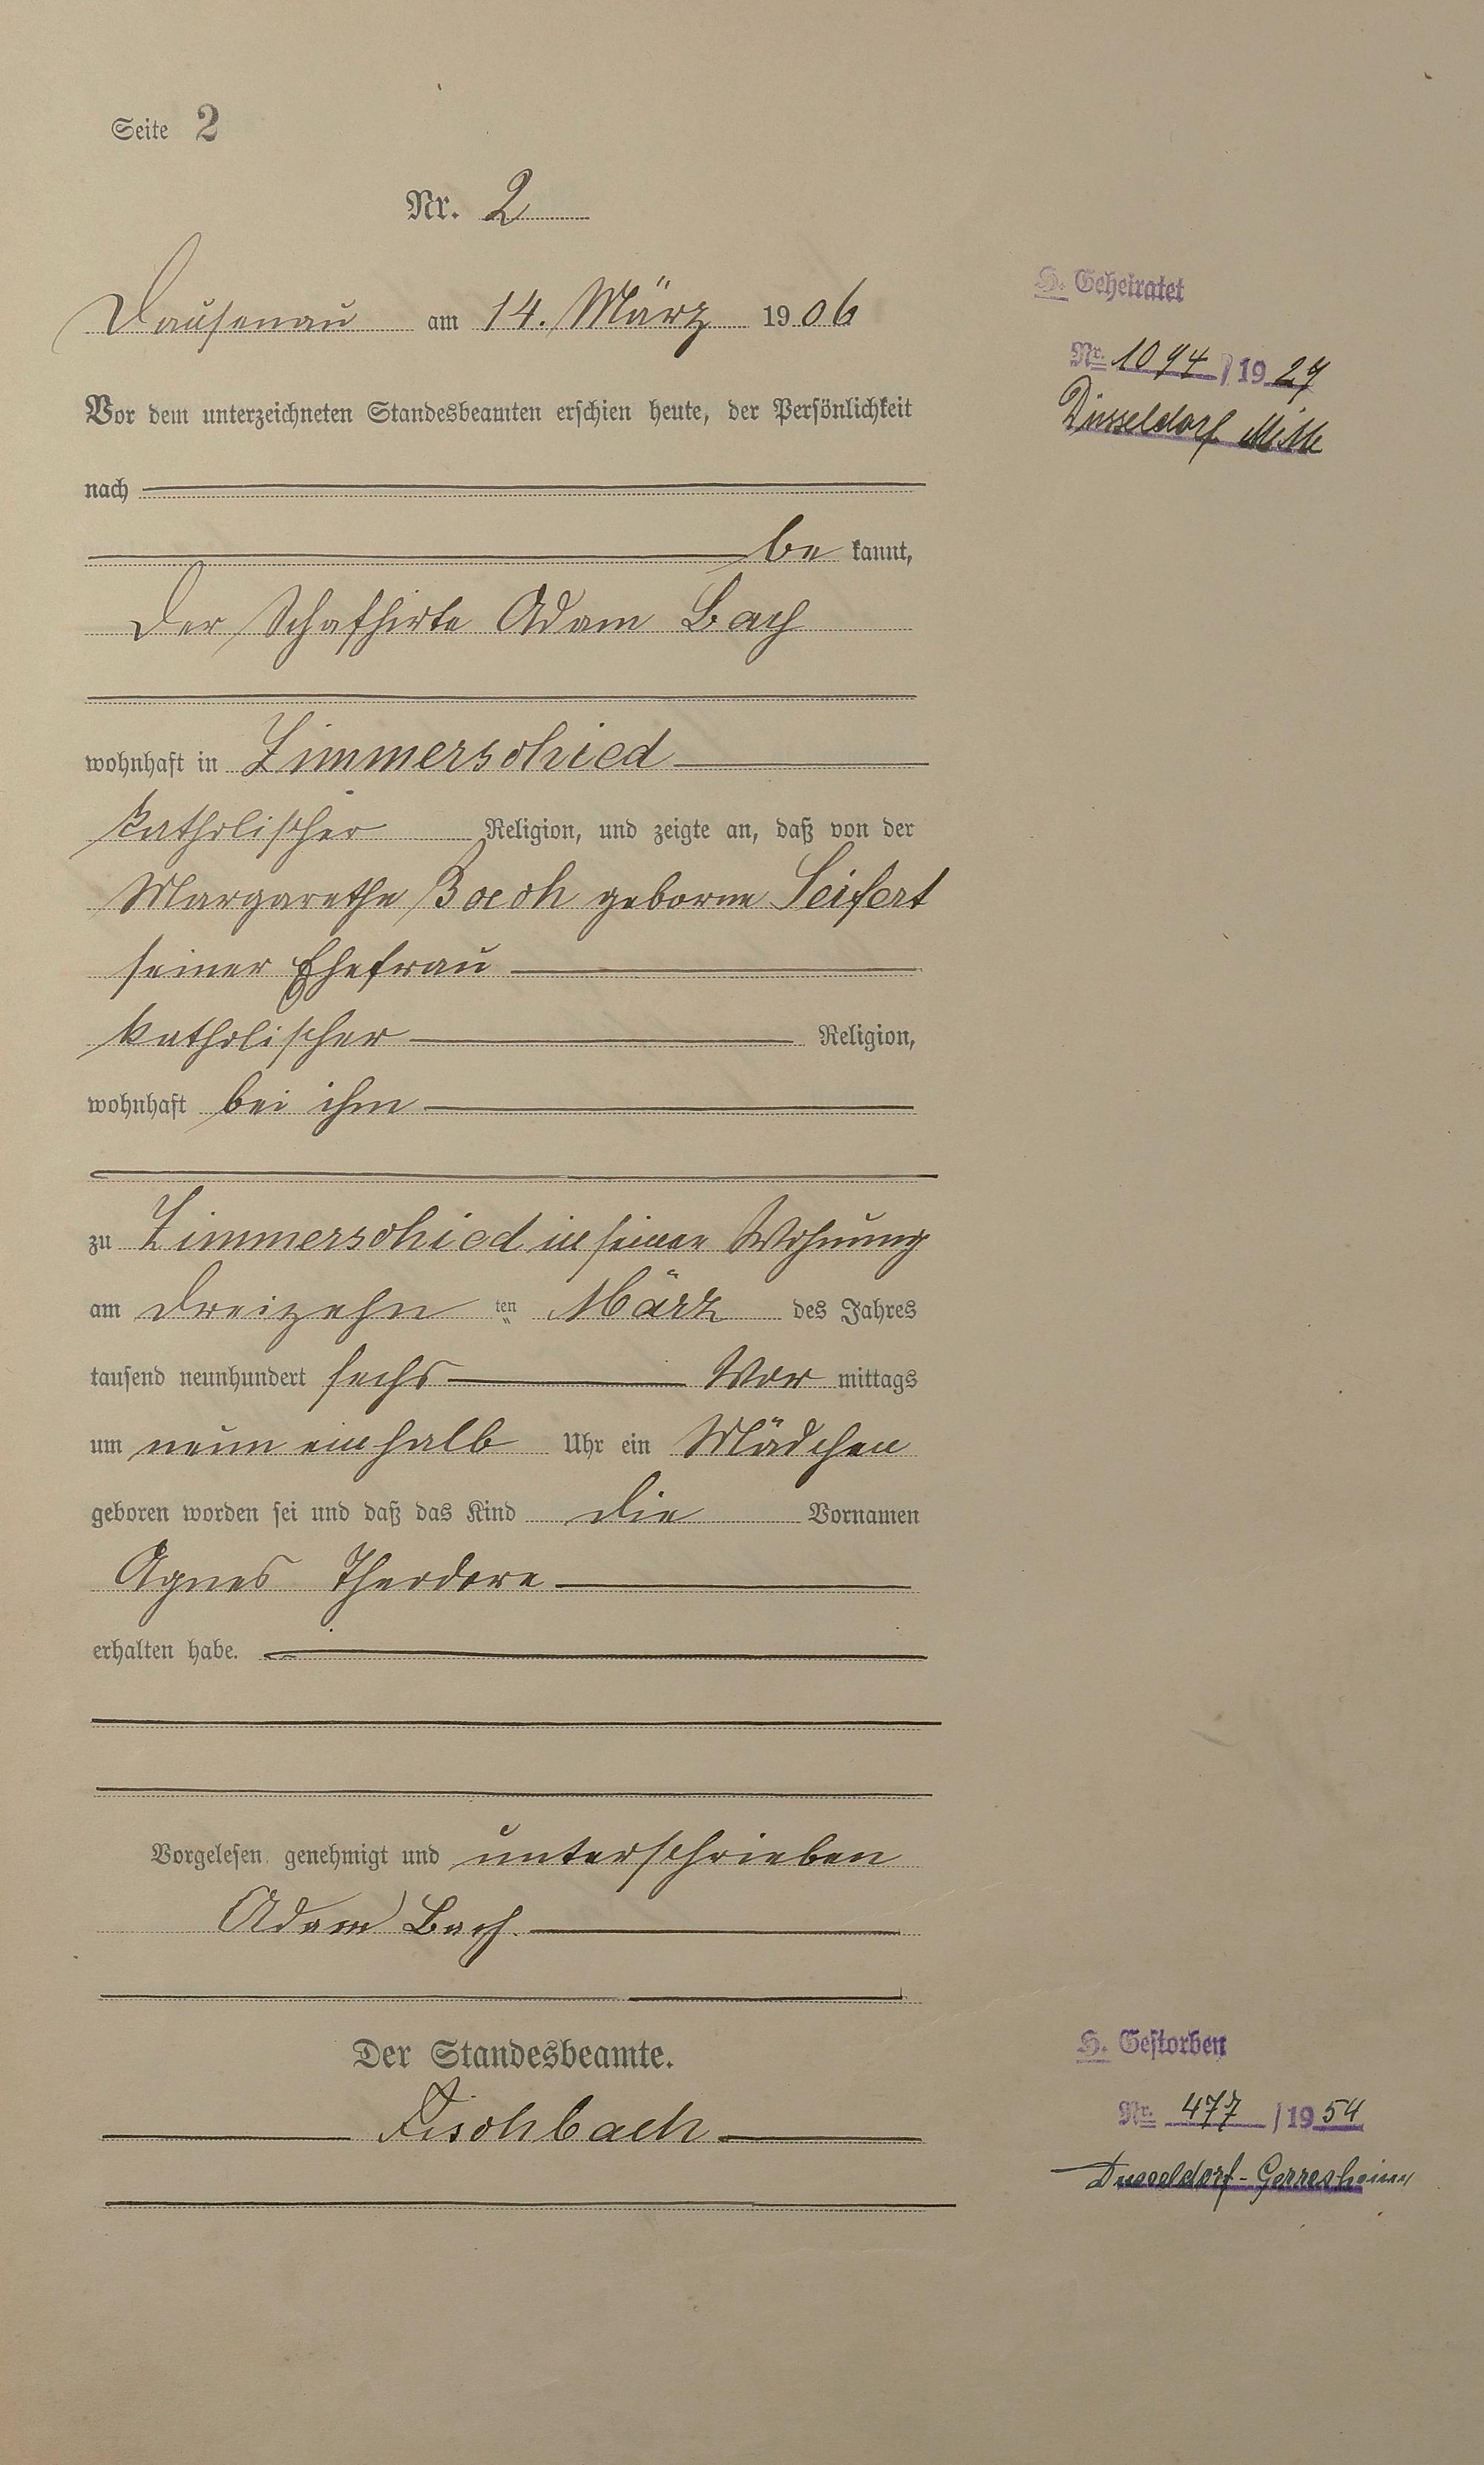 Seite 2
Nr. 2
Dausenau am 14. März 1906
Vor dem unterzeichneten Standesbeamten erschien heute, der Persönlichkeit
nach
be kannt,
der Schafhirte Adam Bach
wohnhaft in Zimmerschied
katholischer Religion, und zeigte an, daß von der
Margarethe Bach geborne Seifert
seiner Ehefrau
katholischer Religion,
wohnhaft bei ihm
zu Zimmerschied in seiner Wohnung
am dreizehn ten März des Jahres
tausend neunhundert sechs Vor mittags
um neun einhalb Uhr ein Mädchen
geboren worden sei und daß das Kind die Vornamen
Agnes Theodore
erhalten habe.
Vorgelesen, genehmigt und unterschrieben
Adam Bach.
Der Standesbeamte.
Fischbach
H. Geheiratet
Nr. 1094/1929
Düsseldorf Mitte
H. Gestorben
Nr. 477/1954
Düsseldorf-Gerresheim